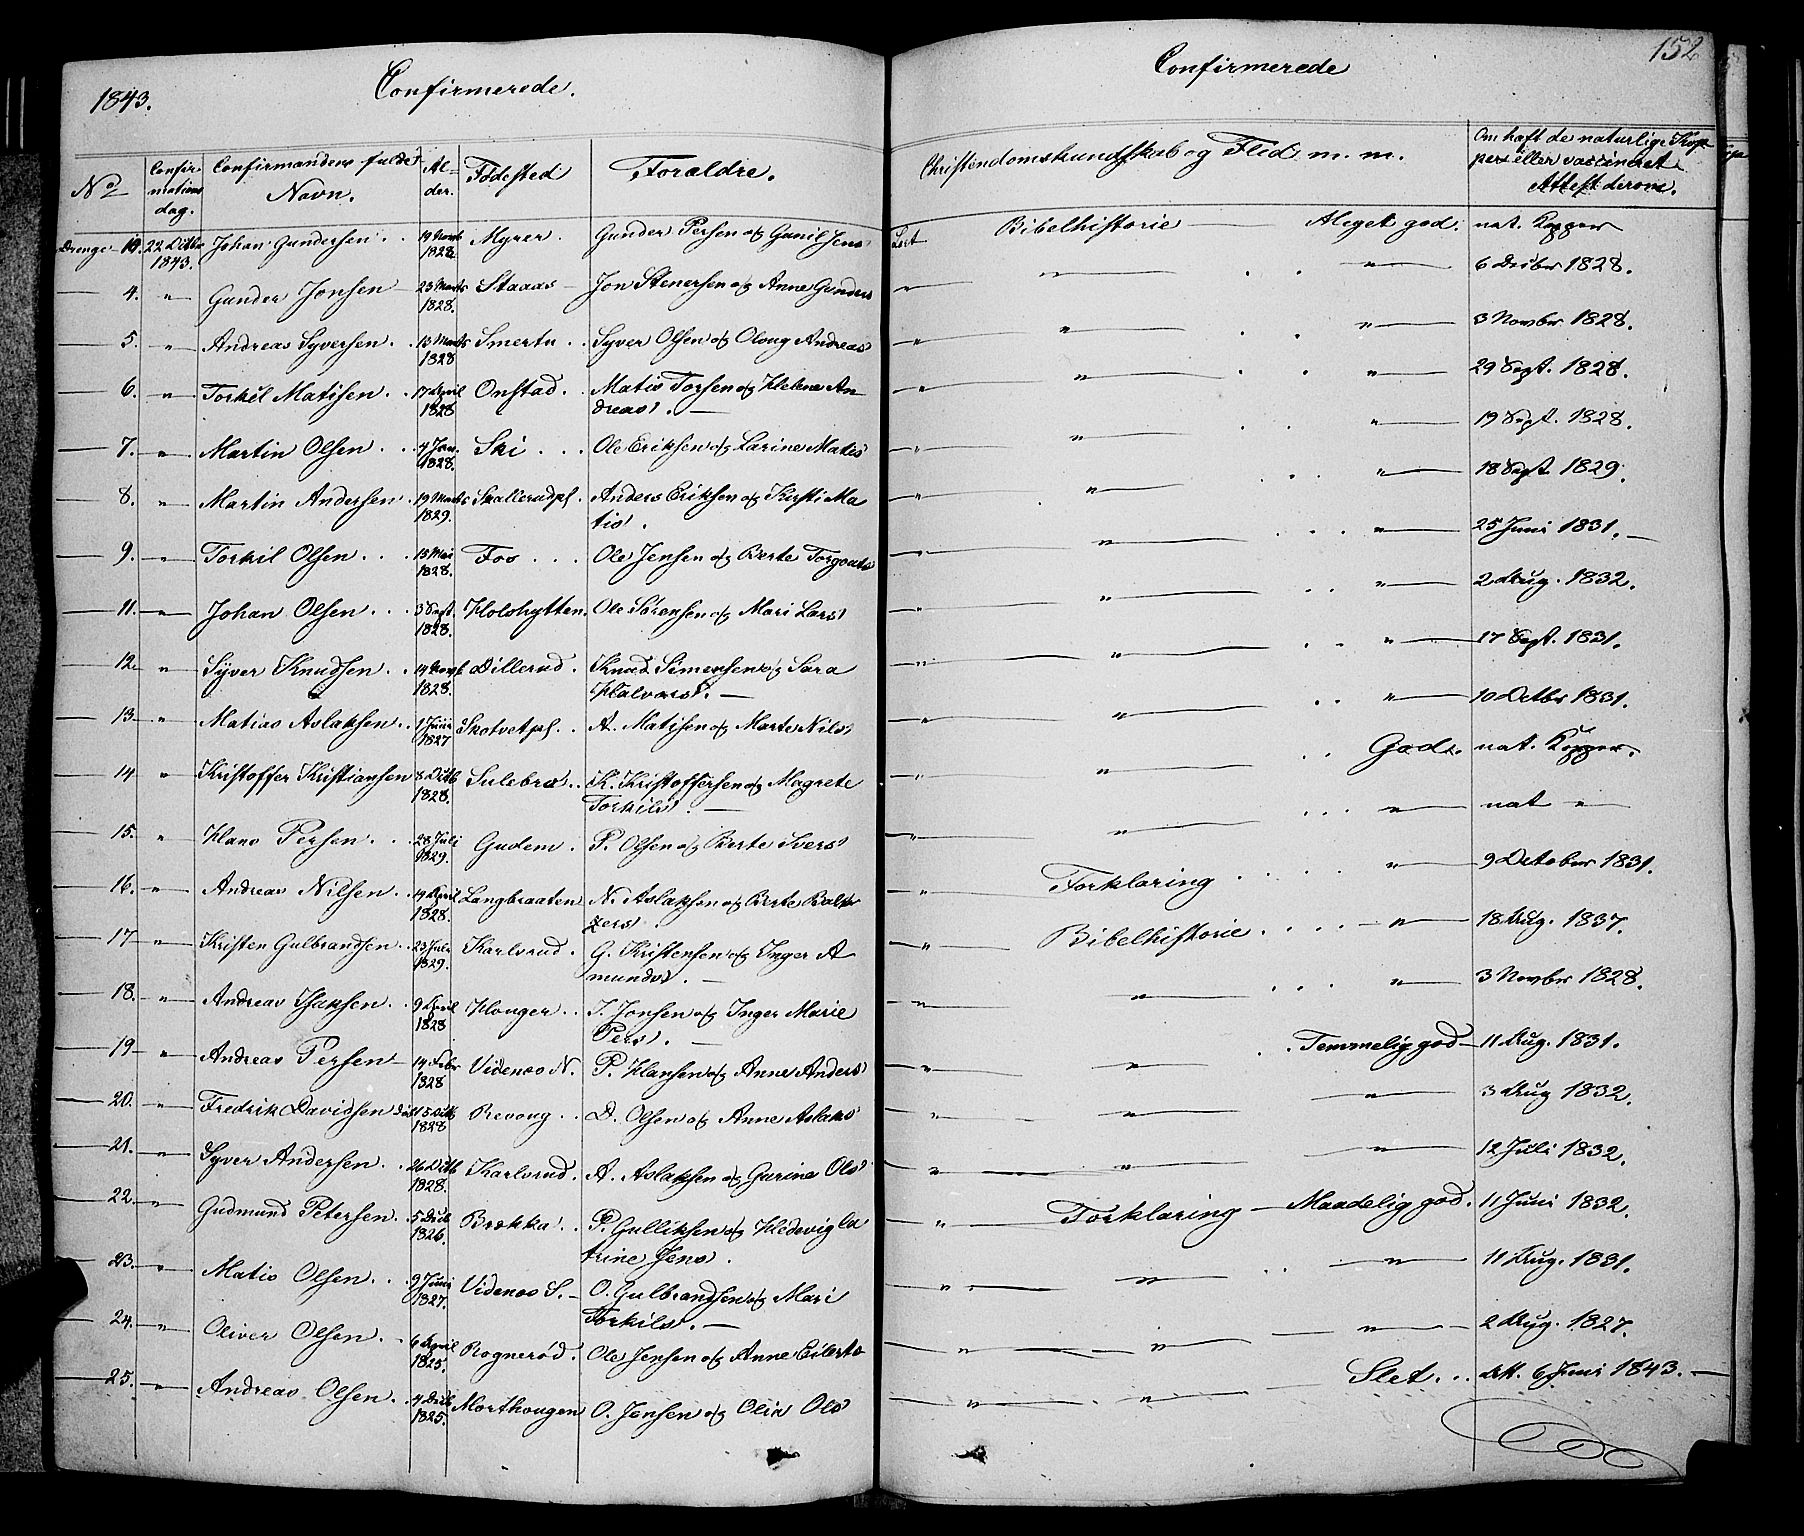 1843. Confirmerede.
No Confirmations dag. Confirmandens fulde Navn. Alder. Fødested Forældre.
Drenge 10. 22 Octbr 1843. Johan Gundersen. 19 Novbr 1828 Myrer. Gunder Persen og Gunil Jens
4. " Gunder Jonsen 23 Marts 1828. Staaas Jon Stenersen og Anne Gunders
5. " Andreas Syversen. 13 Marts 1828 Smertu Syver Olsen og Oloug Andreas
6. " Torkel Matisen. 17 April 1828 Onstad. Matis Torsen og Helene An
dreas.
7. " Martin Olsen 4 Jan. 1828. Ski Ole Eriksen og Larine Matis
8. " Martin Andersen. 19 Marts 1829. Skallerudpl. Anders Eriksen og Kirsti Ma
tis.
9. " Torkil Olsen 13 Mai 1828. Fos Ole Jensen og Berte Torgouts
11. " Johan Olsen 3 Sept. 1828. Holshytten. Ole Sørensen og Mari Lars
12. " Syver Knudsen 14 1828. Dillerud. Knud Simensen og Sara
Halvors.
13. " Matias Aslaksen 1 Juni 1827 Skotvetpl. A. Matisen og Marte Nils
14. " Kristoffer Kristiansen 8 Octb 1828. Sulebræ K. Kristoffersen og Magrete
Torkils.
15. " Hans Persen. 28 Juli 1829. Gudem. P. Olsen og Berte Ivers
16. " Andreas Nilsen 19 April 1828. Langbraaten N. Aslaksen og Berte Balt
zers.
17. " Kristen Gulbrandsen 23 Juli 1829. Karlsrud. G. Kristensen og Inger A
munds.
18. " Andreas Isaksen. 9 April 1828 Houger I. Jonsen og Inger Marie
Pers.
19. " Andreas Persen 14 Febr 1828 Videnes N. P. Hansen og Anne Anders
20. " Fredrik Davidsen 15 Octb 1828 Revoug D. Olsen og Anne Aslaks
21. " Syver Andersen. 26 Octb 1828. Karlsrud. A. Aslaksen og Gurine Ols
22. " Gudmund Petersen. 5 1826. Brekka P. Gulliksen og Hedevig Ca
trine Jens.
23. " Matis Olsen 9 Juni 1827. Videnes S. O. Gulbrandsen og Mari
Torkils.
24. " Oliver Olsen. 6 April 1825. Rognerød. Ole Jensen og Anne Eilerts
25. " Andreas Olsen. 4 1825. Morthougen O. Jensen og Olia Ols
152
Confirmerede
Christendomskundskab og Flid m. m. Om haft de naturlige Kop
per eller vaccineret
Attest derom.
Læst Bibelhistorie Meget god. nat. Kopper
" " " 6 Decbr 1828.
" " " 3 Novbr 1828.
" " " 29 Sept. 1828.
" " " 19 Sept. 1828.
" " " 18 Sept. 1829.
" " " 25 Juni 1831.
" " " 2 Aug. 1832.
" " " 17 Sept. 1831.
" " " 10 Octbr 1831.
" " God. nat. Kopper.
" " " nat "
" Forklaring " 9 October 1831.
" Bibelhistorie " 18 Aug. 1837.
" " " 3 Novbr 1828.
" " Temmelig god 11 Aug. 1831.
" " " 3 Aug 1832.
" " " 12 Juli 1832.
" Forklaring Maadelig god. 11 Juni 1832.
" " " 11 Aug. 1831.
" " " 2 Aug. 1827.
" " Slet. att. 6 Juni 1843.